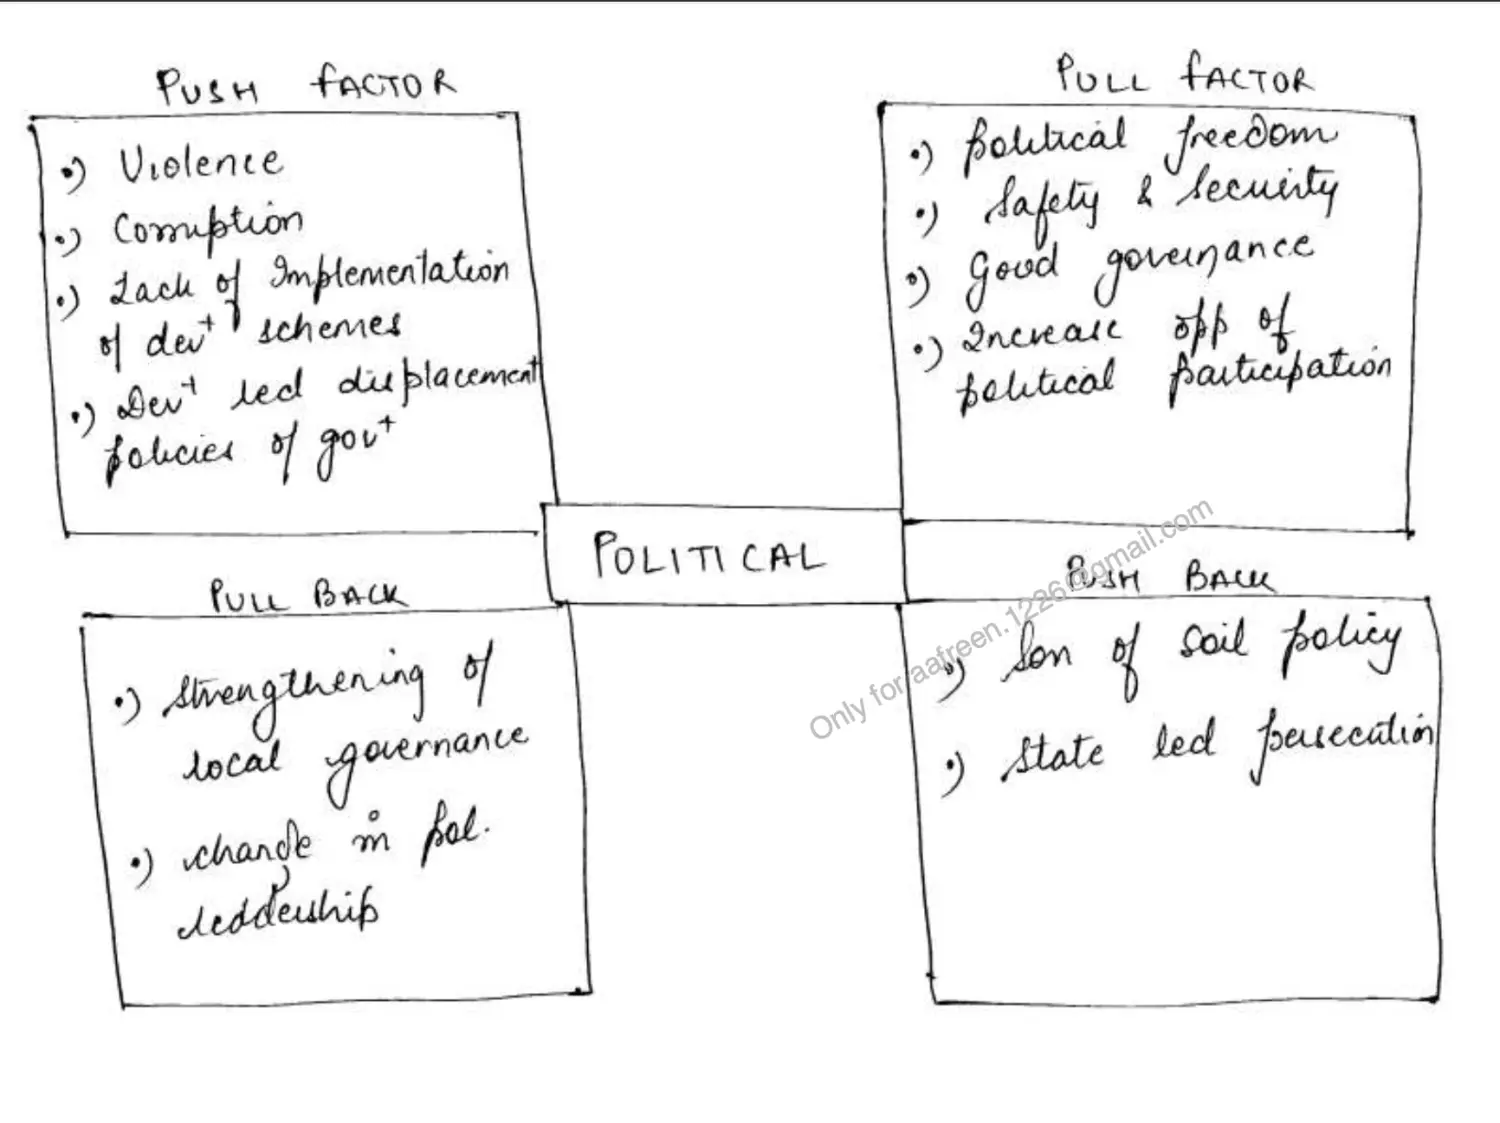 PUSH FACTOR
•) Violence
•) Corruption
•) Lack of Implementation
of dev⁺ schemes
•) Dev⁺ led displacement
policies of gov⁺
PULL FACTOR
•) political freedom
•) Safety & Security
•) Good governance
•) Increase opp of
political participation
POLITICAL
PULL BACK
•) strengthening of
local governance
•) change in pol.
leadership
PUSH BACK
•) Son of soil policy
•) state led persecution
Only for aafreen.1226@gmail.com